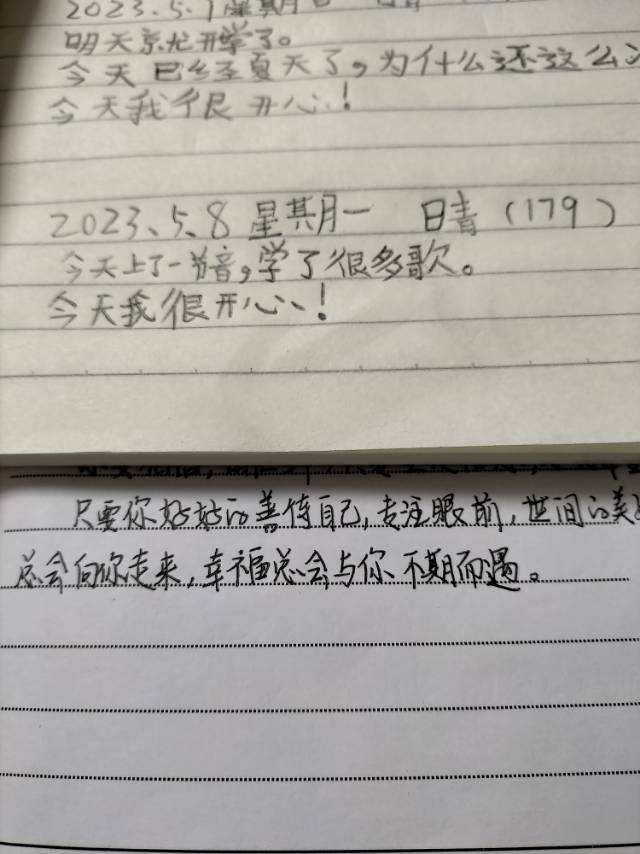 2023.5.7 星期日
明天京尤开学了。
今天已经夏天了,为什么还这么
今天我很开心!
2023、5、8 星期一 日青(179)
今天上了一节音,学了很多歌。
今天我很开心!
只要你好好的善待自己,专注眼前,世间的美
总会向你走来,幸福总会与你不期而遇。